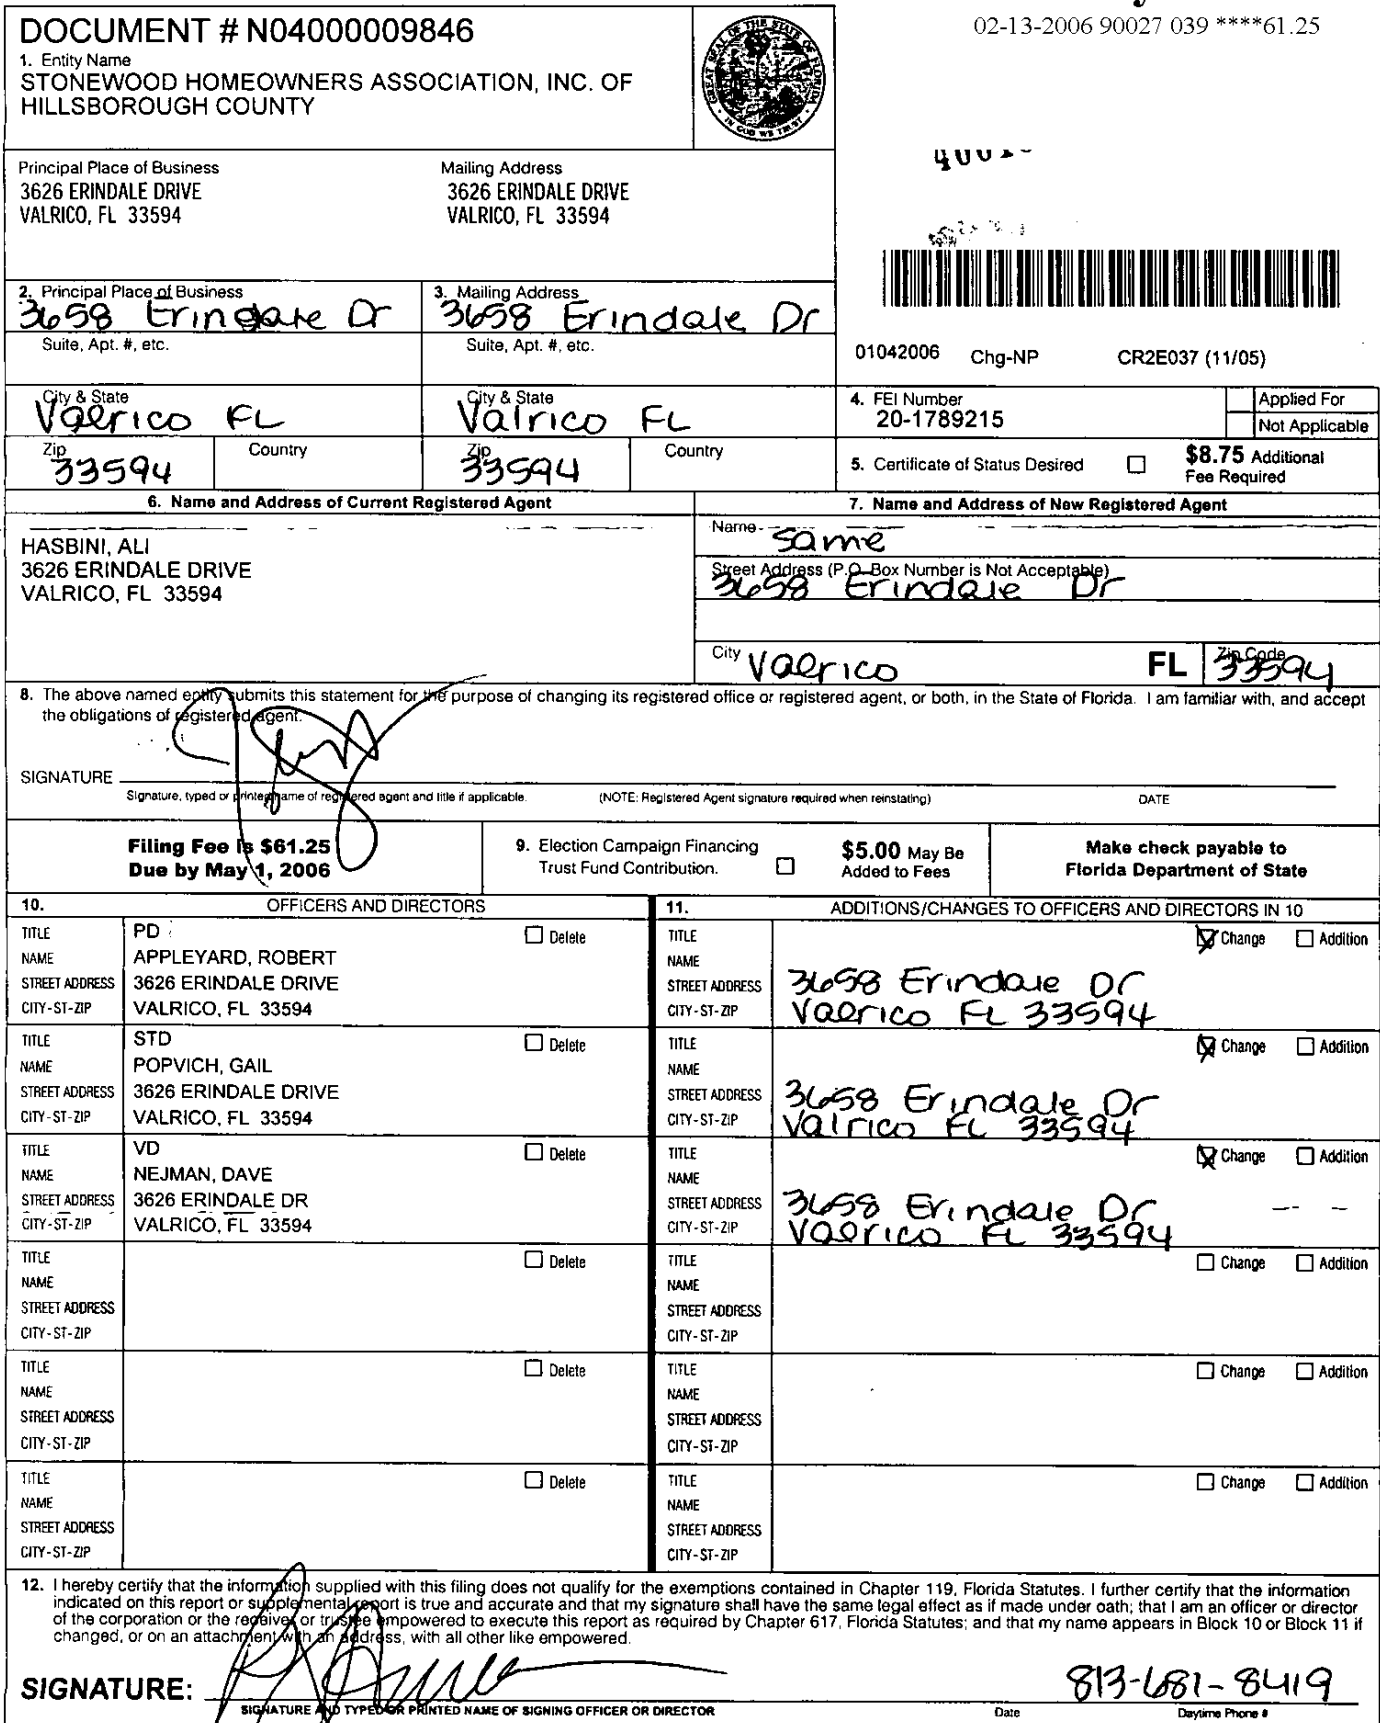 02-13-2006 90027 039 ****61.25
DOCUMENT # N04000009846
1. Entity Name
STONEWOOD HOMEOWNERS ASSOCIATION, INC. OF
HILLSBOROUGH COUNTY
Principal Place of Business
3626 ERINDALE DRIVE
VALRICO, FL 33594
Mailing Address
3626 ERINDALE DRIVE
VALRICO, FL 33594
2. Principal Place of Business
3658 Erindale Dr
Suite, Apt. #, etc.
City & State
Valrico FL
Zip
33594
Country
3. Mailing Address
3658 Erindale Dr
Suite, Apt. #, etc.
City & State
Valrico FL
Zip
33594
Country
01042006 Chg-NP CR2E037 (11/05)
4. FEI Number
20-1789215
Applied For
Not Applicable
5. Certificate of Status Desired
$8.75 Additional
Fee Required
6. Name and Address of Current Registered Agent
HASBINI, ALI
3626 ERINDALE DRIVE
VALRICO, FL 33594
7. Name and Address of New Registered Agent
Name
Same
Street Address (P.O. Box Number is Not Acceptable)
3658 Erindale Dr
City Valrico FL Zip Code 33594
8. The above named entity submits this statement for the purpose of changing its registered office or registered agent, or both, in the State of Florida. I am familiar with, and accept
the obligations of registered agent.
SIGNATURE
Signature, typed or printed name of registered agent and title if applicable. (NOTE: Registered Agent signature required when reinstating) DATE
Filing Fee is $61.25
Due by May 1, 2006
9. Election Campaign Financing
Trust Fund Contribution.
$5.00 May Be
Added to Fees
Make check payable to
Florida Department of State
10. OFFICERS AND DIRECTORS
TITLE PD Delete
NAME APPLEYARD, ROBERT
STREET ADDRESS 3626 ERINDALE DRIVE
CITY-ST-ZIP VALRICO, FL 33594
TITLE STD Delete
NAME POPVICH, GAIL
STREET ADDRESS 3626 ERINDALE DRIVE
CITY-ST-ZIP VALRICO, FL 33594
TITLE VD Delete
NAME NEJMAN, DAVE
STREET ADDRESS 3626 ERINDALE DR
CITY-ST-ZIP VALRICO, FL 33594
TITLE Delete
NAME
STREET ADDRESS
CITY-ST-ZIP
TITLE Delete
NAME
STREET ADDRESS
CITY-ST-ZIP
TITLE Delete
NAME
STREET ADDRESS
CITY-ST-ZIP
11. ADDITIONS/CHANGES TO OFFICERS AND DIRECTORS IN 10
TITLE Change Addition
NAME
STREET ADDRESS 3658 Erindale Dr
CITY-ST-ZIP Valrico FL 33594
TITLE Change Addition
NAME
STREET ADDRESS 3658 Erindale Dr
CITY-ST-ZIP Valrico FL 33594
TITLE Change Addition
NAME
STREET ADDRESS 3658 Erindale Dr
CITY-ST-ZIP Valrico FL 33594
TITLE Change Addition
NAME
STREET ADDRESS
CITY-ST-ZIP
TITLE Change Addition
NAME
STREET ADDRESS
CITY-ST-ZIP
TITLE Change Addition
NAME
STREET ADDRESS
CITY-ST-ZIP
12. I hereby certify that the information supplied with this filing does not qualify for the exemptions contained in Chapter 119, Florida Statutes. I further certify that the information
indicated on this report or supplemental report is true and accurate and that my signature shall have the same legal effect as if made under oath; that I am an officer or director
of the corporation or the receiver or trustee empowered to execute this report as required by Chapter 617, Florida Statutes; and that my name appears in Block 10 or Block 11 if
changed, or on an attachment with an address, with all other like empowered.
SIGNATURE: 813-681-8419
SIGNATURE AND TYPED OR PRINTED NAME OF SIGNING OFFICER OR DIRECTOR Date Daytime Phone #